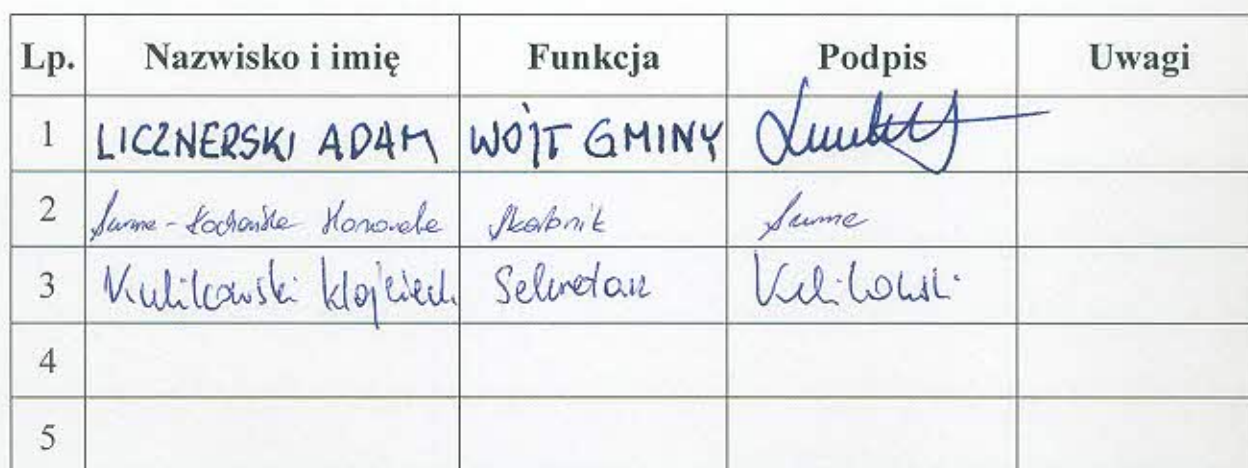 Lp. Nazwisko i imię Funkcja Podpis Uwagi
1 LICZNERSKI ADAM WÓJT GMINY
2 Honorata Skarbnik
3 Kulikowski Wojciech Sekretarz Kulikowski
4
5